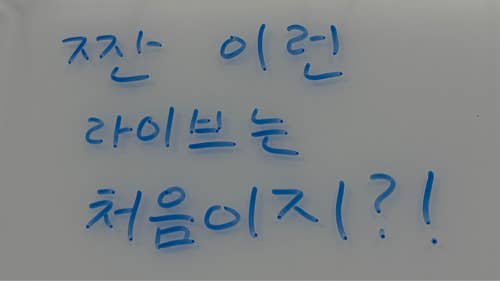 짠 이런
라이브는
처음이지?!